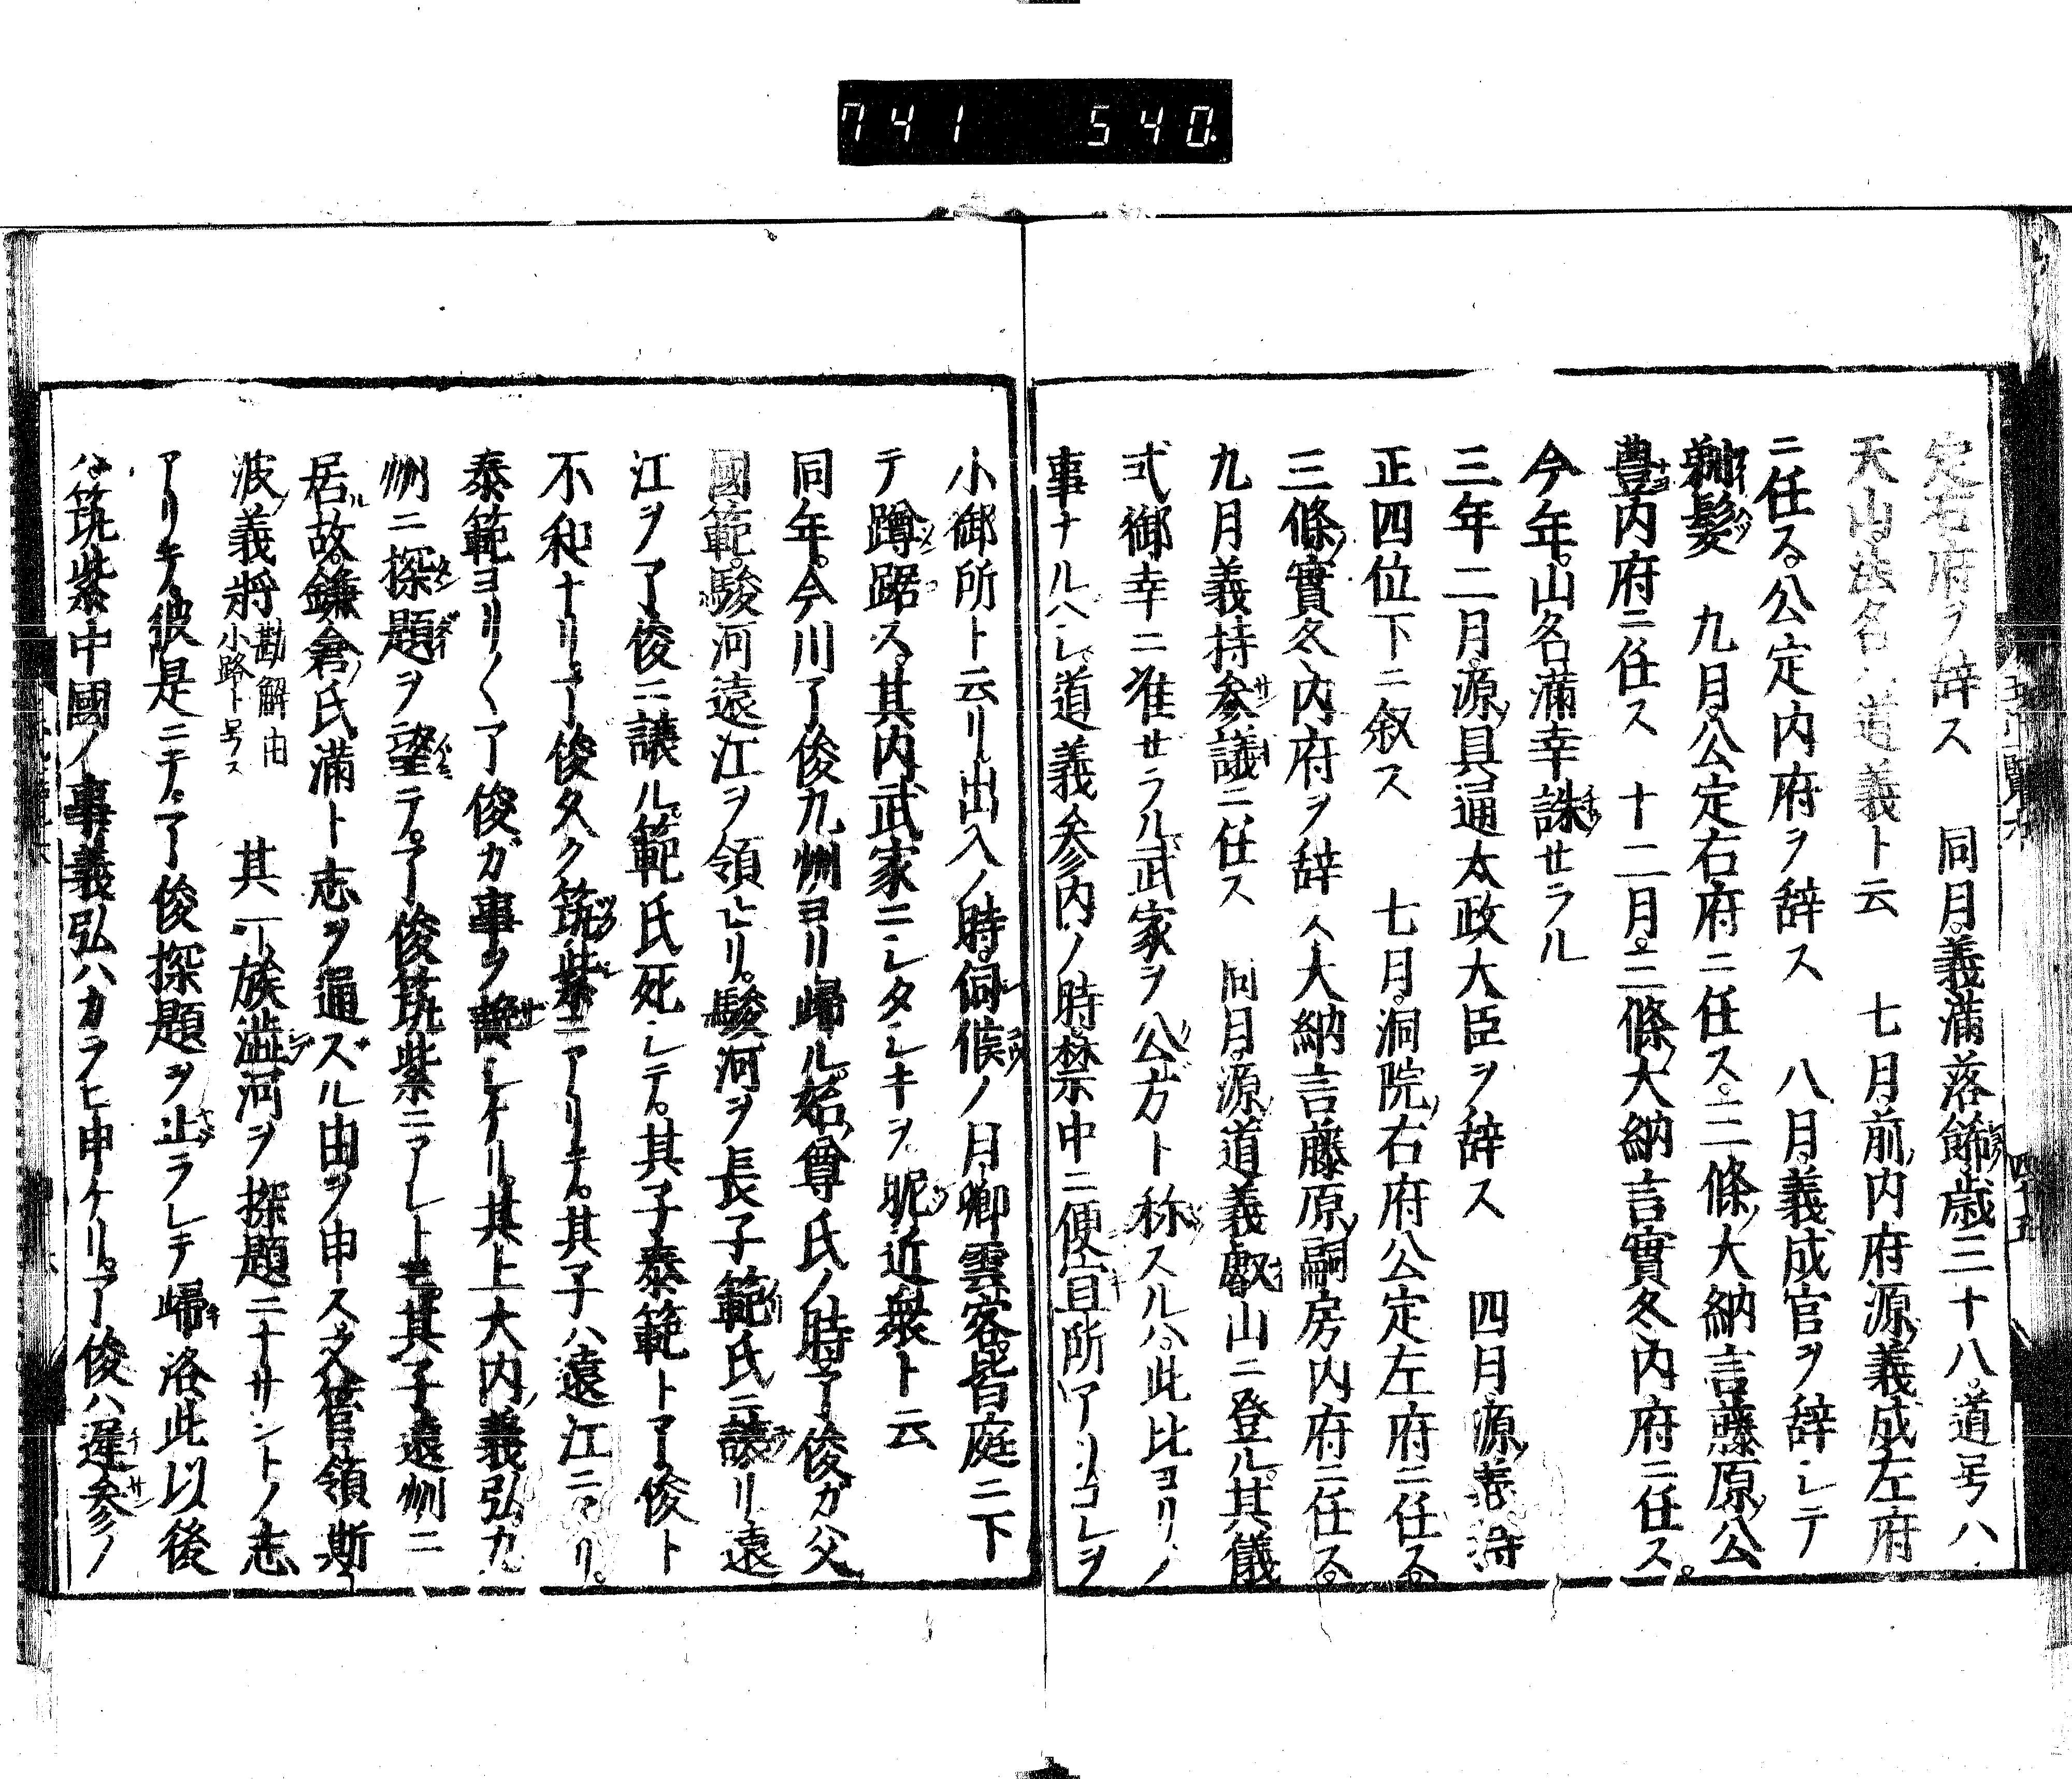 741 540
定右府ヲ辞ス 同月義満落餝歳三十八道号ハ
天山法名ハ道義ト云 七月前内府源義成左府
ニ任ス公定内府ヲ辞ス 八月義成官ヲ辞シテ
剃髪 九月公定右府ニ任ス三條大納言藤原公
豊内府ニ任ス 十二月三條大納言實冬内府ニ任ス
今年山名満幸誅セラル
三年二月源具通太政大臣ヲ辞ス 四月源義持
正四位下ニ叙ス 七月洞院右府公定左府ニ任ス
三條實冬内府ヲ辞ス大納言藤原嗣房内府ニ任ス
九月義持参議ニ任ス 同月源道義叡山ニ登ル其儀
式御幸ニ准セラル武家ヲ公方ト称スルハ此比ヨリノ
事ナルヘシ道義参内ノ時禁中ニ便宜所アリコレヲ
小御所ト云リ出入ノ時伺候ノ月卿雲客皆庭ニ下
テ蹲踞ス其内武家ニシタシキヲ昵近衆ト云
同年今川了俊九州ヨリ帰ル始尊氏ノ時了俊ガ父
國範駿河遠江ヲ領セリ駿河ヲ長子範氏ニ譲リ遠
江ヲ了俊ニ譲ル範氏死シテ其子泰範ト了俊ト
不和ナリ了俊久ク筑紫ニアリテ其子ハ遠江ニアリ
泰範ヨリ〱了俊ガ事ヲ讒シケリ其上大内義弘九
州ニ探題ヲ望テ了俊筑紫ニアレトモ其子遠州ニ
居故鎌倉氏満ト志ヲ通スル由ヲ申ス又管領斯
波義将勘解由小路ト号ス 其一族澁河ヲ探題ニナサントノ志
アリテ彼是ニテ了俊探題ヲ止ラレテ帰洛此以後
ハ筑紫中國ノ事義弘ハカラヒ申ケリ了俊ハ遅参ノ